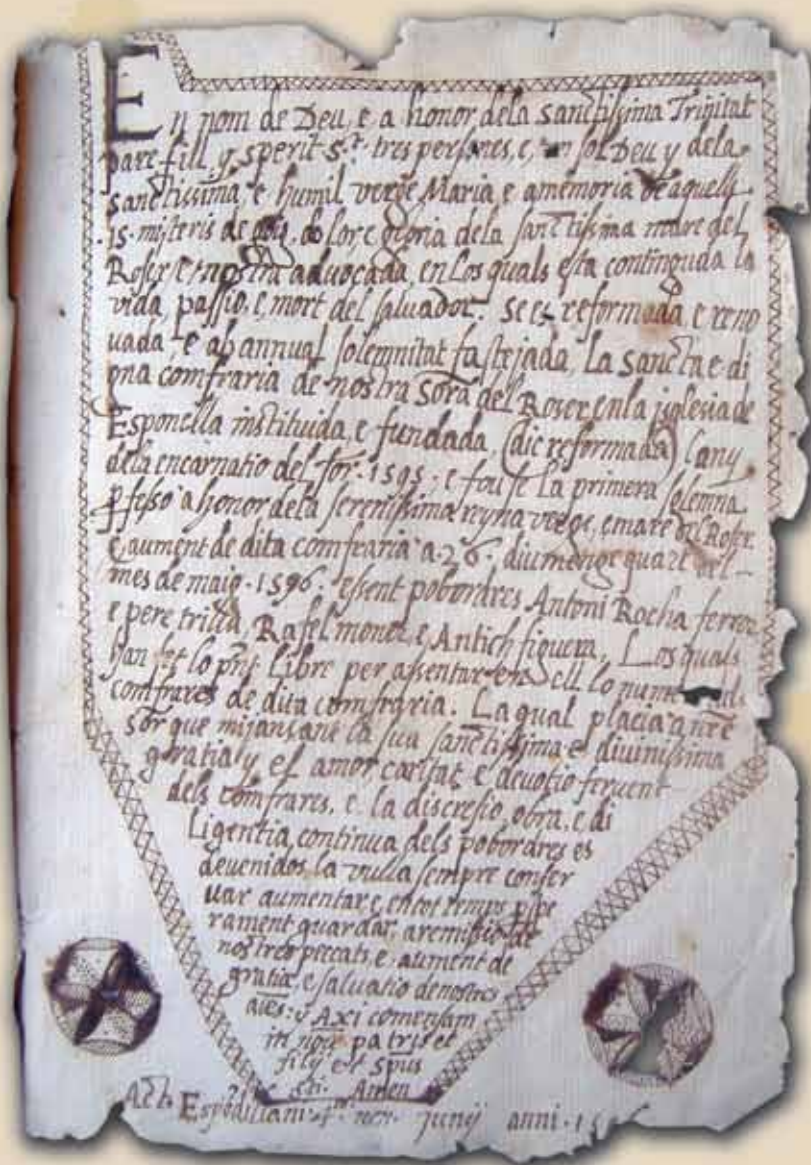 En nom de Deu, e a honor dela sanctissima Trinitat
pare fill, y sperit st. tres persones, e, un sol Deu y dela
sanctissima, e humil verge Maria, e amemoria de aquells
.15. misteris de goig. dolor e gloria dela sanctissima mare del
Roser e nostra advocada, en los quals esta continguda la
vida, passio, e, mort del salvador. Se es reformada, e reno
uada, e ab annual solemnitat fastejada, La sancta e di
gna comfraria de nostra Sora del Roser en la isglesia de
Esponella instituida, e fundada, (dic reformada) lany
dela encarnatio del sor. 1595; e fou fe La primera solemna
pfesso a honor dela serenissima reyna verge, e mare del Roser.
E, aument de dita comfraria a. 26. diumenge quart del
mes de maig. 1596. essent pobordres Antoni Rocha ferrer
e pere trilla, Rafel moner, e Antich figuera, Los quals
han fet lo pnt Libre per assentar en dell lo nume dels
comfrares de dita comfraria. La qual placia a nre
Sor que mijansant la sua sanctissima e diuinissima
gratia, y el amor caritat e deuotio feruent
dels comfrares, e, la discresio, obra, e di
Ligentia continua dels pobordres es
deuenidos, la vulla sempre conser
uar aumentar e, en tot temps pspe
rament guardar, a remissio de
nostres peccats, e, aument de
gratia, e saluatio de nostres
aies: y Axi comensam
in noie patris et
filij et spus
sti. Amen
Esponelliani 4. non. Junij anni. 15